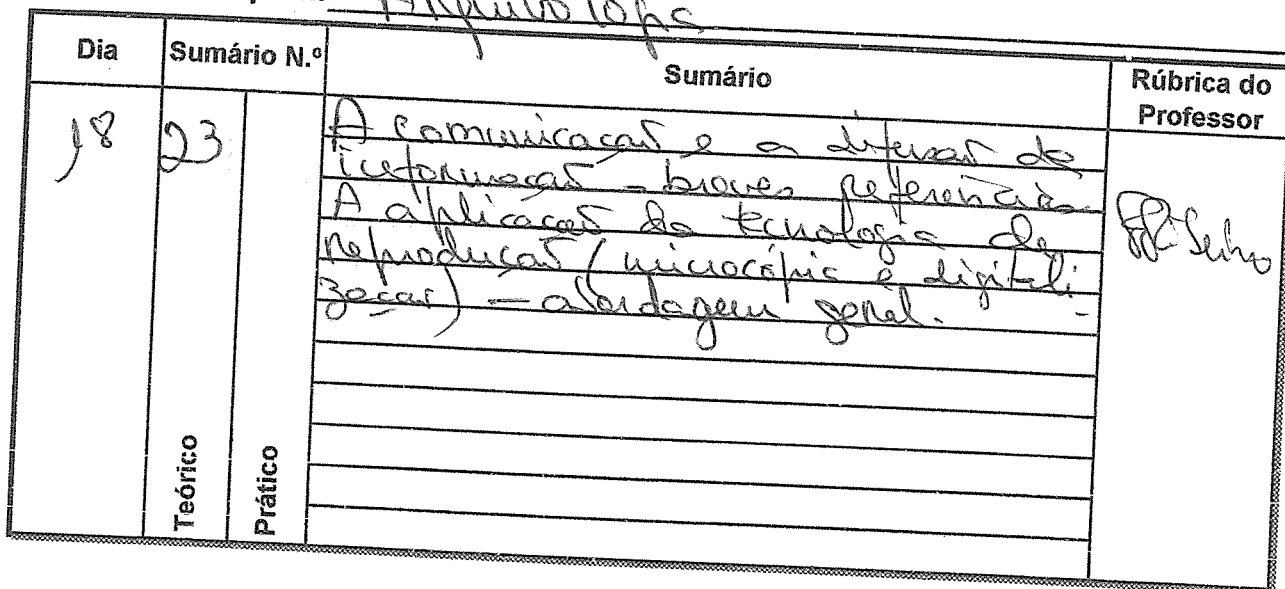 Arquivologia
Dia Sumário N.º Sumário Rúbrica do Professor
18 23 A comunicação e a difusão da
informação – breves referências
A aplicação da tecnologia de
reprodução (microcópia e digitali-
zação) – abordagem geral.
Teórico Prático